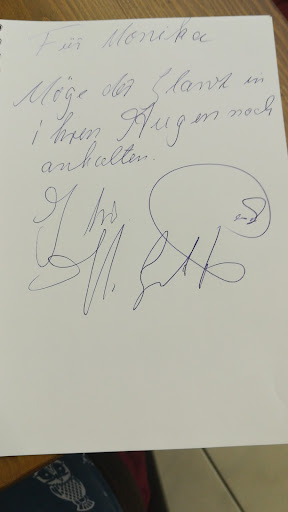 Für Monika
Möge der Glanz in
ihren Augen noch
anhalten.
Ihr